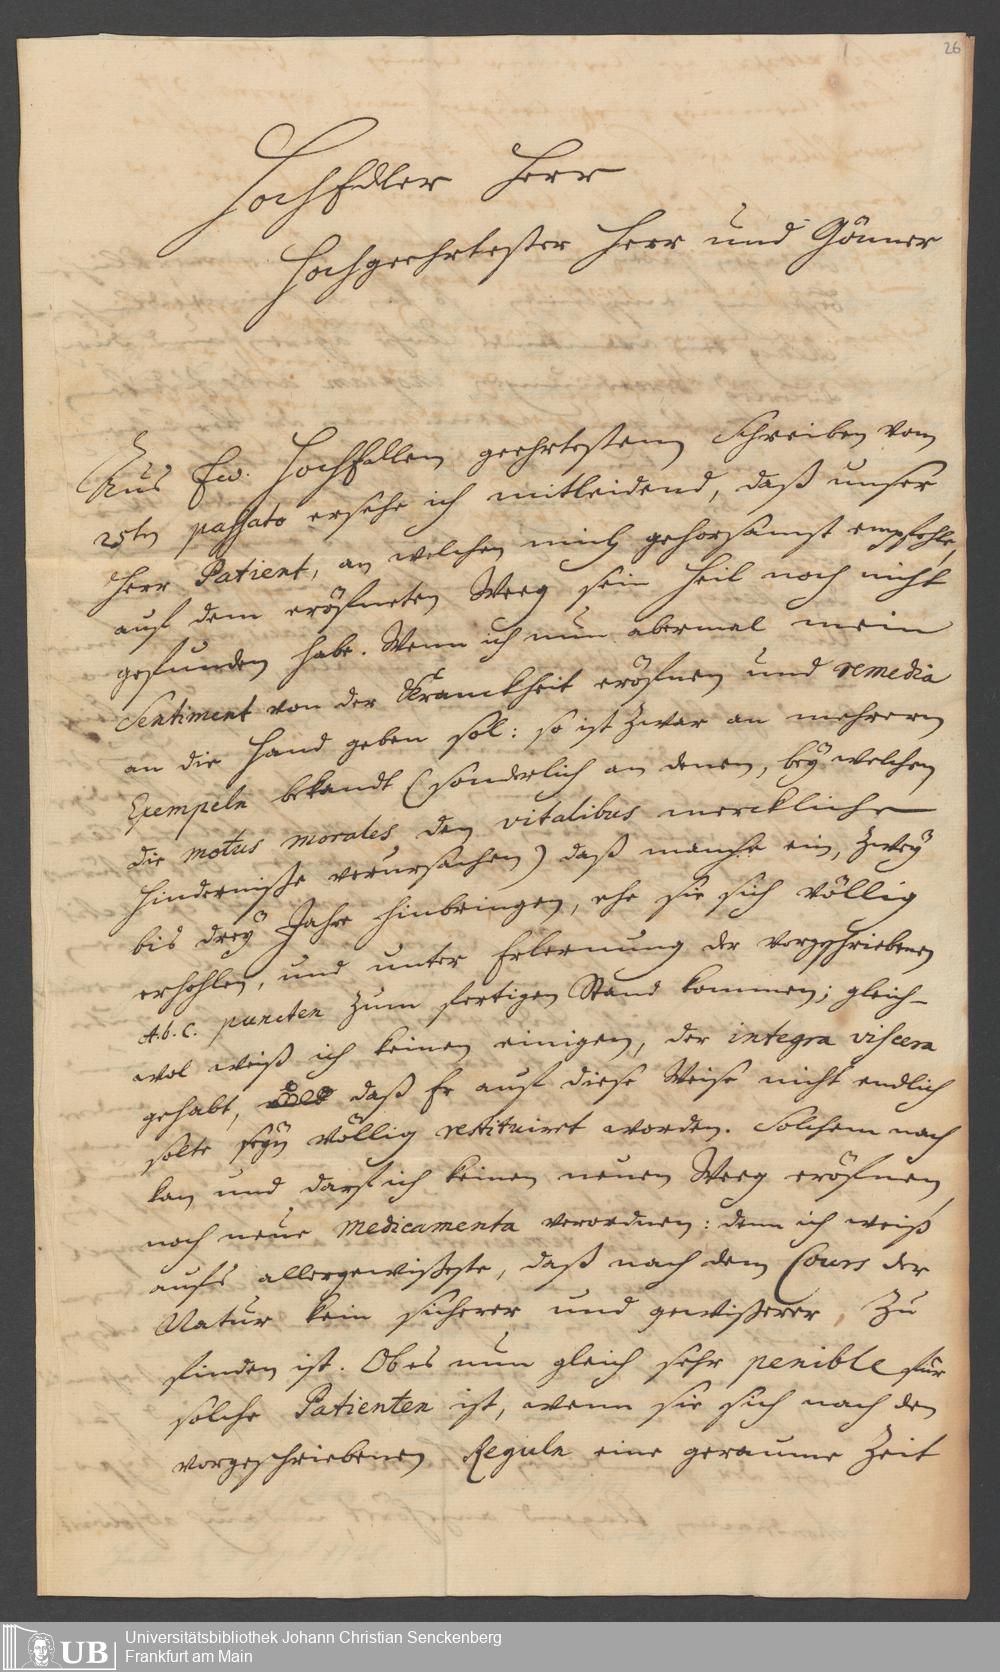 26
HochEdler Herr
Hochgeehrtester Herr und Gönner
Aus Ew. HochEdlen geehrtestem Schreiben vom
25ten passato ersehe ich mitleidend, daß unser
Herr Patient, an welchen mich gehorsamst empfehle,
auf dem eröfneten Weeg sein Heil noch nicht
gefunden habe. Wenn ich nun abermal mein
Sentiment von der Kranckheit eröfnen und remedia
an die Hand geben sol: so ist zwar an mehrern
Exempeln bekandt (sonderlich an denen, bey welchen
die motus morales den vitalibus merckliche
Hindernisse verursachen) daß manche ein, zwey
bis drey Jahre hinbringen, ehe sie sich völlig
erhohlen, und unter Erlernung der vorgeschriebenen
A.b.c. puncten zum fertigen Stand kommen; gleich-
wol weiß ich keinen einigen, der integra viscera
gehabt, daß Er auf diese Weise nicht endlich
solte seyn völlig restituiret worden. Solchem nach
kan und darf ich keinen neuen Weeg eröfnen,
noch neue Medicamenta verordnen: denn ich weiß
aufs allergewisseste, daß nach dem Cours der
Natur kein sicherer und gewisserer, zu
finden ist. Ob es nun gleich sehr penible für
solche Patienten ist, wenn sie sich nach den
vorgeschriebenen Reguln eine geraume Zeit
UB
Universitätsbibliothek Johann Christian Senckenberg
Frankfurt am Main